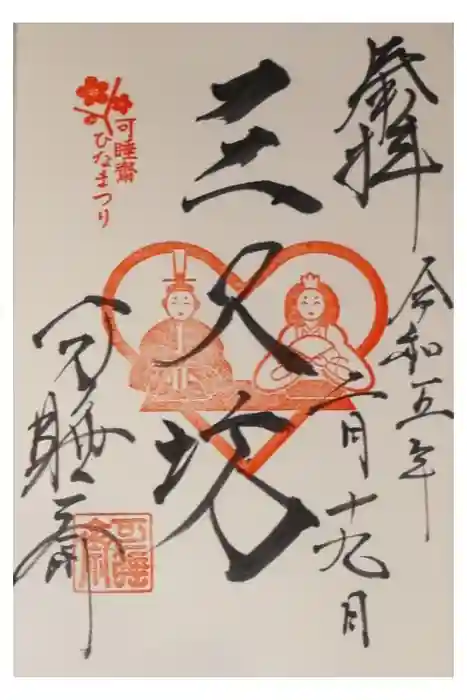 奉拝
令和五年
二月十九日
三尺坊
可睡斎
ひなまつり
可睡齋
可睡齋